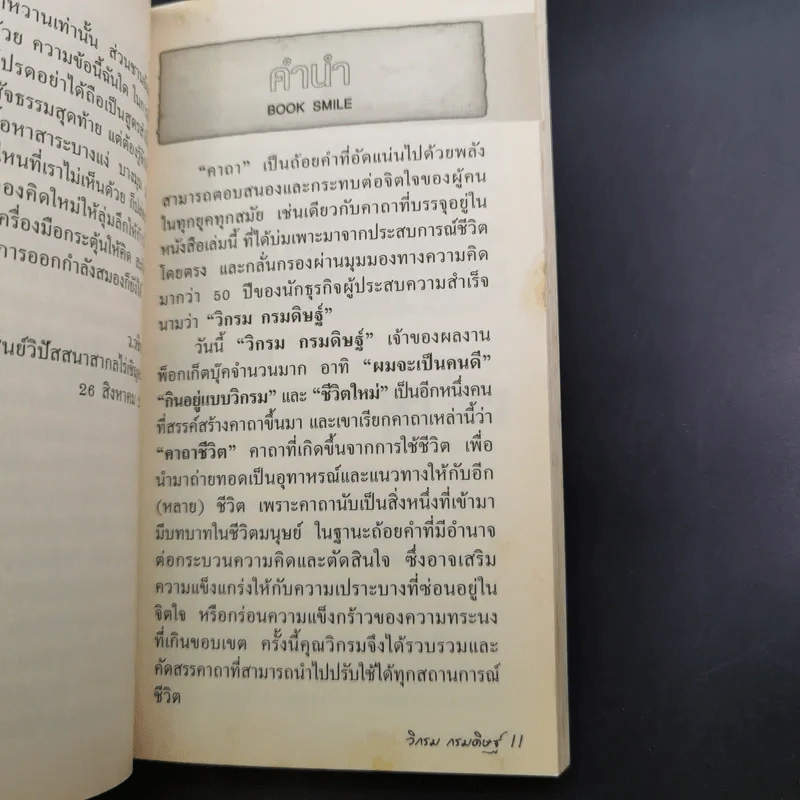 หวานเท่านั้น ส่วน
ความข้อนี้ฉันใด
โปรดอย่าได้ถือเป็นสูตร
สัจธรรมสุดท้าย แต่ต้อง
หาสาระบางแง่ บางมุม
ไหนที่เราไม่เห็นด้วย
องคิดใหม่ให้ลุ่มลึก
ครื่องมือกระตุ้นให้คิด
การออกกำลังสมองก็ยังได้
ว.
ศูนย์วิปัสสนาสากลไร่เชิญ
26 สิงหาคม
คำนำ
BOOK SMILE
“คาถา” เป็นถ้อยคำที่อัดแน่นไปด้วยพลัง
สามารถตอบสนองและกระทบต่อจิตใจของผู้คน
ในทุกยุคทุกสมัย เช่นเดียวกับคาถาที่บรรจุอยู่ใน
หนังสือเล่มนี้ ที่ได้บ่มเพาะมาจากประสบการณ์ชีวิต
โดยตรง และกลั่นกรองผ่านมุมมองทางความคิด
มากว่า 50 ปีของนักธุรกิจผู้ประสบความสำเร็จ
นามว่า “วิกรม กรมดิษฐ์”
วันนี้ “วิกรม กรมดิษฐ์” เจ้าของผลงาน
พ็อกเก็ตบุ๊คจำนวนมาก อาทิ “ผมจะเป็นคนดี”
“กินอยู่แบบวิกรม” และ “ชีวิตใหม่” เป็นอีกหนึ่งคน
ที่สรรค์สร้างคาถาขึ้นมา และเขาเรียกคาถาเหล่านี้ว่า
“คาถาชีวิต” คาถาที่เกิดขึ้นจากการใช้ชีวิต เพื่อ
นำมาถ่ายทอดเป็นอุทาหรณ์และแนวทางให้กับอีก
(หลาย) ชีวิต เพราะคาถานับเป็นสิ่งหนึ่งที่เข้ามา
มีบทบาทในชีวิตมนุษย์ ในฐานะถ้อยคำที่มีอำนาจ
ต่อกระบวนความคิดและตัดสินใจ ซึ่งอาจเสริม
ความแข็งแกร่งให้กับความเปราะบางที่ซ่อนอยู่ใน
จิตใจ หรือกร่อนความแข็งกร้าวของความทระนง
ที่เกินขอบเขต ครั้งนี้คุณวิกรมจึงได้รวบรวมและ
คัดสรรคาถาที่สามารถนำไปปรับใช้ได้ทุกสถานการณ์
ชีวิต
วิกรม กรมดิษฐ์ 11